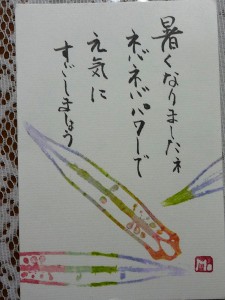 暑くなりましたネ
ネバネバパワーで
元気に
すごしましょう
Mo